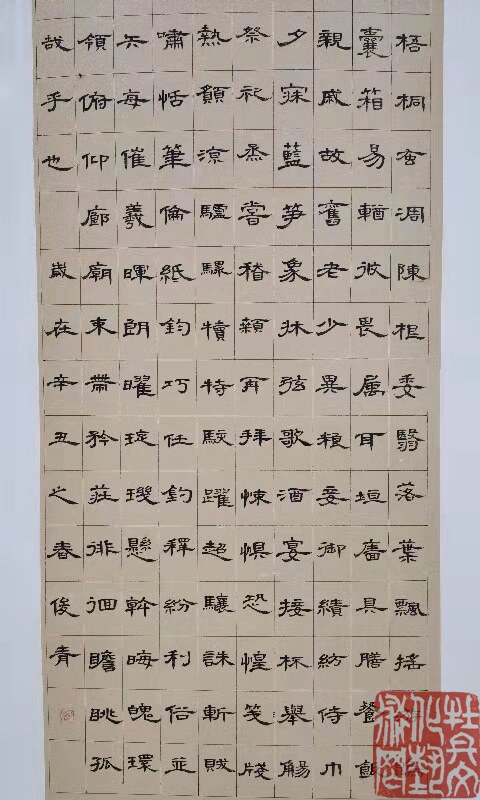 梧桐蚤凋陳根委翳落葉飄搖
囊箱易輶攸畏属耳垣牆具膳餐飯
親戚故舊老少異糧妾御績紡侍巾
夕寐藍笋象牀弦歌酒宴接杯舉觴
祭祀烝嘗稽顙再拜悚懼恐惶箋牒
熱願涼驢騾犢特駭躍超驤誅斬賊
嘯恬筆倫紙鈞巧任釣釋紛利俗並
矢每催羲暉朗曜琁璣懸斡晦魄環
領俯仰廊廟束帶矜莊徘徊瞻眺孤
哉乎也 歲在辛丑之春俊青